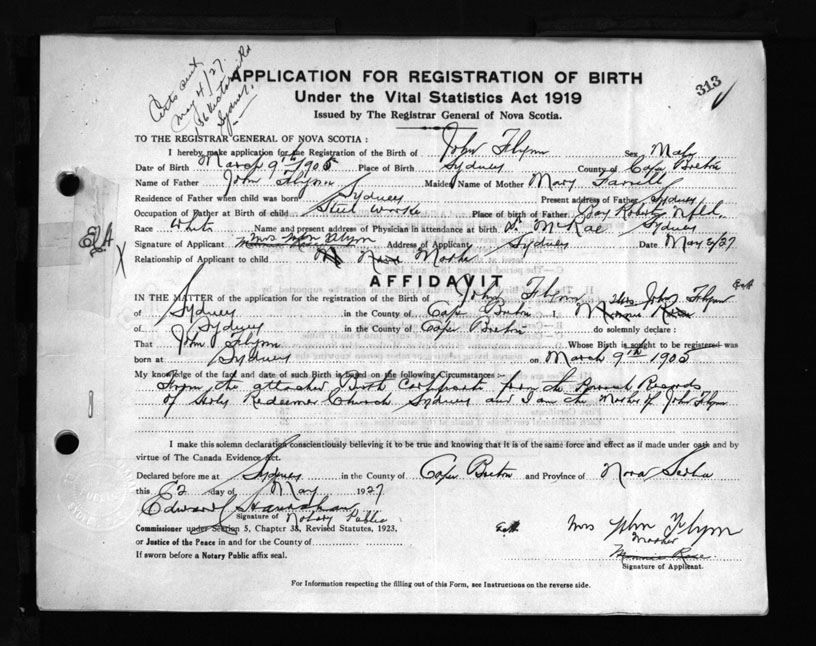 313
Certs sent
May 4/27
Sydney
APPLICATION FOR REGISTRATION OF BIRTH
Under the Vital Statistics Act 1919
Issued by The Registrar General of Nova Scotia.
TO THE REGISTRAR GENERAL OF NOVA SCOTIA :
I hereby make application for the Registration of the Birth of John Flynn Sex Male
Date of Birth March 9th 1905 Place of Birth Sydney County of Cape Breton
Name of Father John Flynn Maiden Name of Mother Mary Farrell
Residence of Father when child was born Sydney Present address of Father Sydney
Occupation of Father at Birth of child Steel Worker Place of birth of Father Bay Roberts Nfld.
Race White Name and present address of Physician in attendance at birth Dr. McRae Sydney
Signature of Applicant Mrs John Flynn Address of Applicant Sydney Date May 2/27
Relationship of Applicant to child Mother
AFFIDAVIT
IN THE MATTER of the application for the registration of the Birth of John Flynn
of Sydney in the County of Cape Breton I, Mrs John Flynn
of Sydney in the County of Cape Breton do solemnly declare :
That John Flynn Whose Birth is sought to be registered was
born at Sydney on March 9th 1905
My knowledge of the fact and date of such Birth is based on the following Circumstances :—
From the attached Birth Certificate from the Parish Records
of Holy Redeemer Church Sydney and I am the Mother of John Flynn
I make this solemn declaration conscientiously believing it to be true and knowing that it is of the same force and effect as if made under oath and by
virtue of The Canada Evidence Act.
Declared before me at Sydney in the County of Cape Breton and Province of Nova Scotia
this 2 day of May 1927
Edward
Signature of Notary Public
Commissioner under Section 5, Chapter 38, Revised Statutes, 1923,
or Justice of the Peace in and for the County of
If sworn before a Notary Public affix seal.
Mrs John Flynn
Mother
Minnie Rose
Signature of Applicant.
For Information respecting the filling out of this Form, see Instructions on the reverse side.